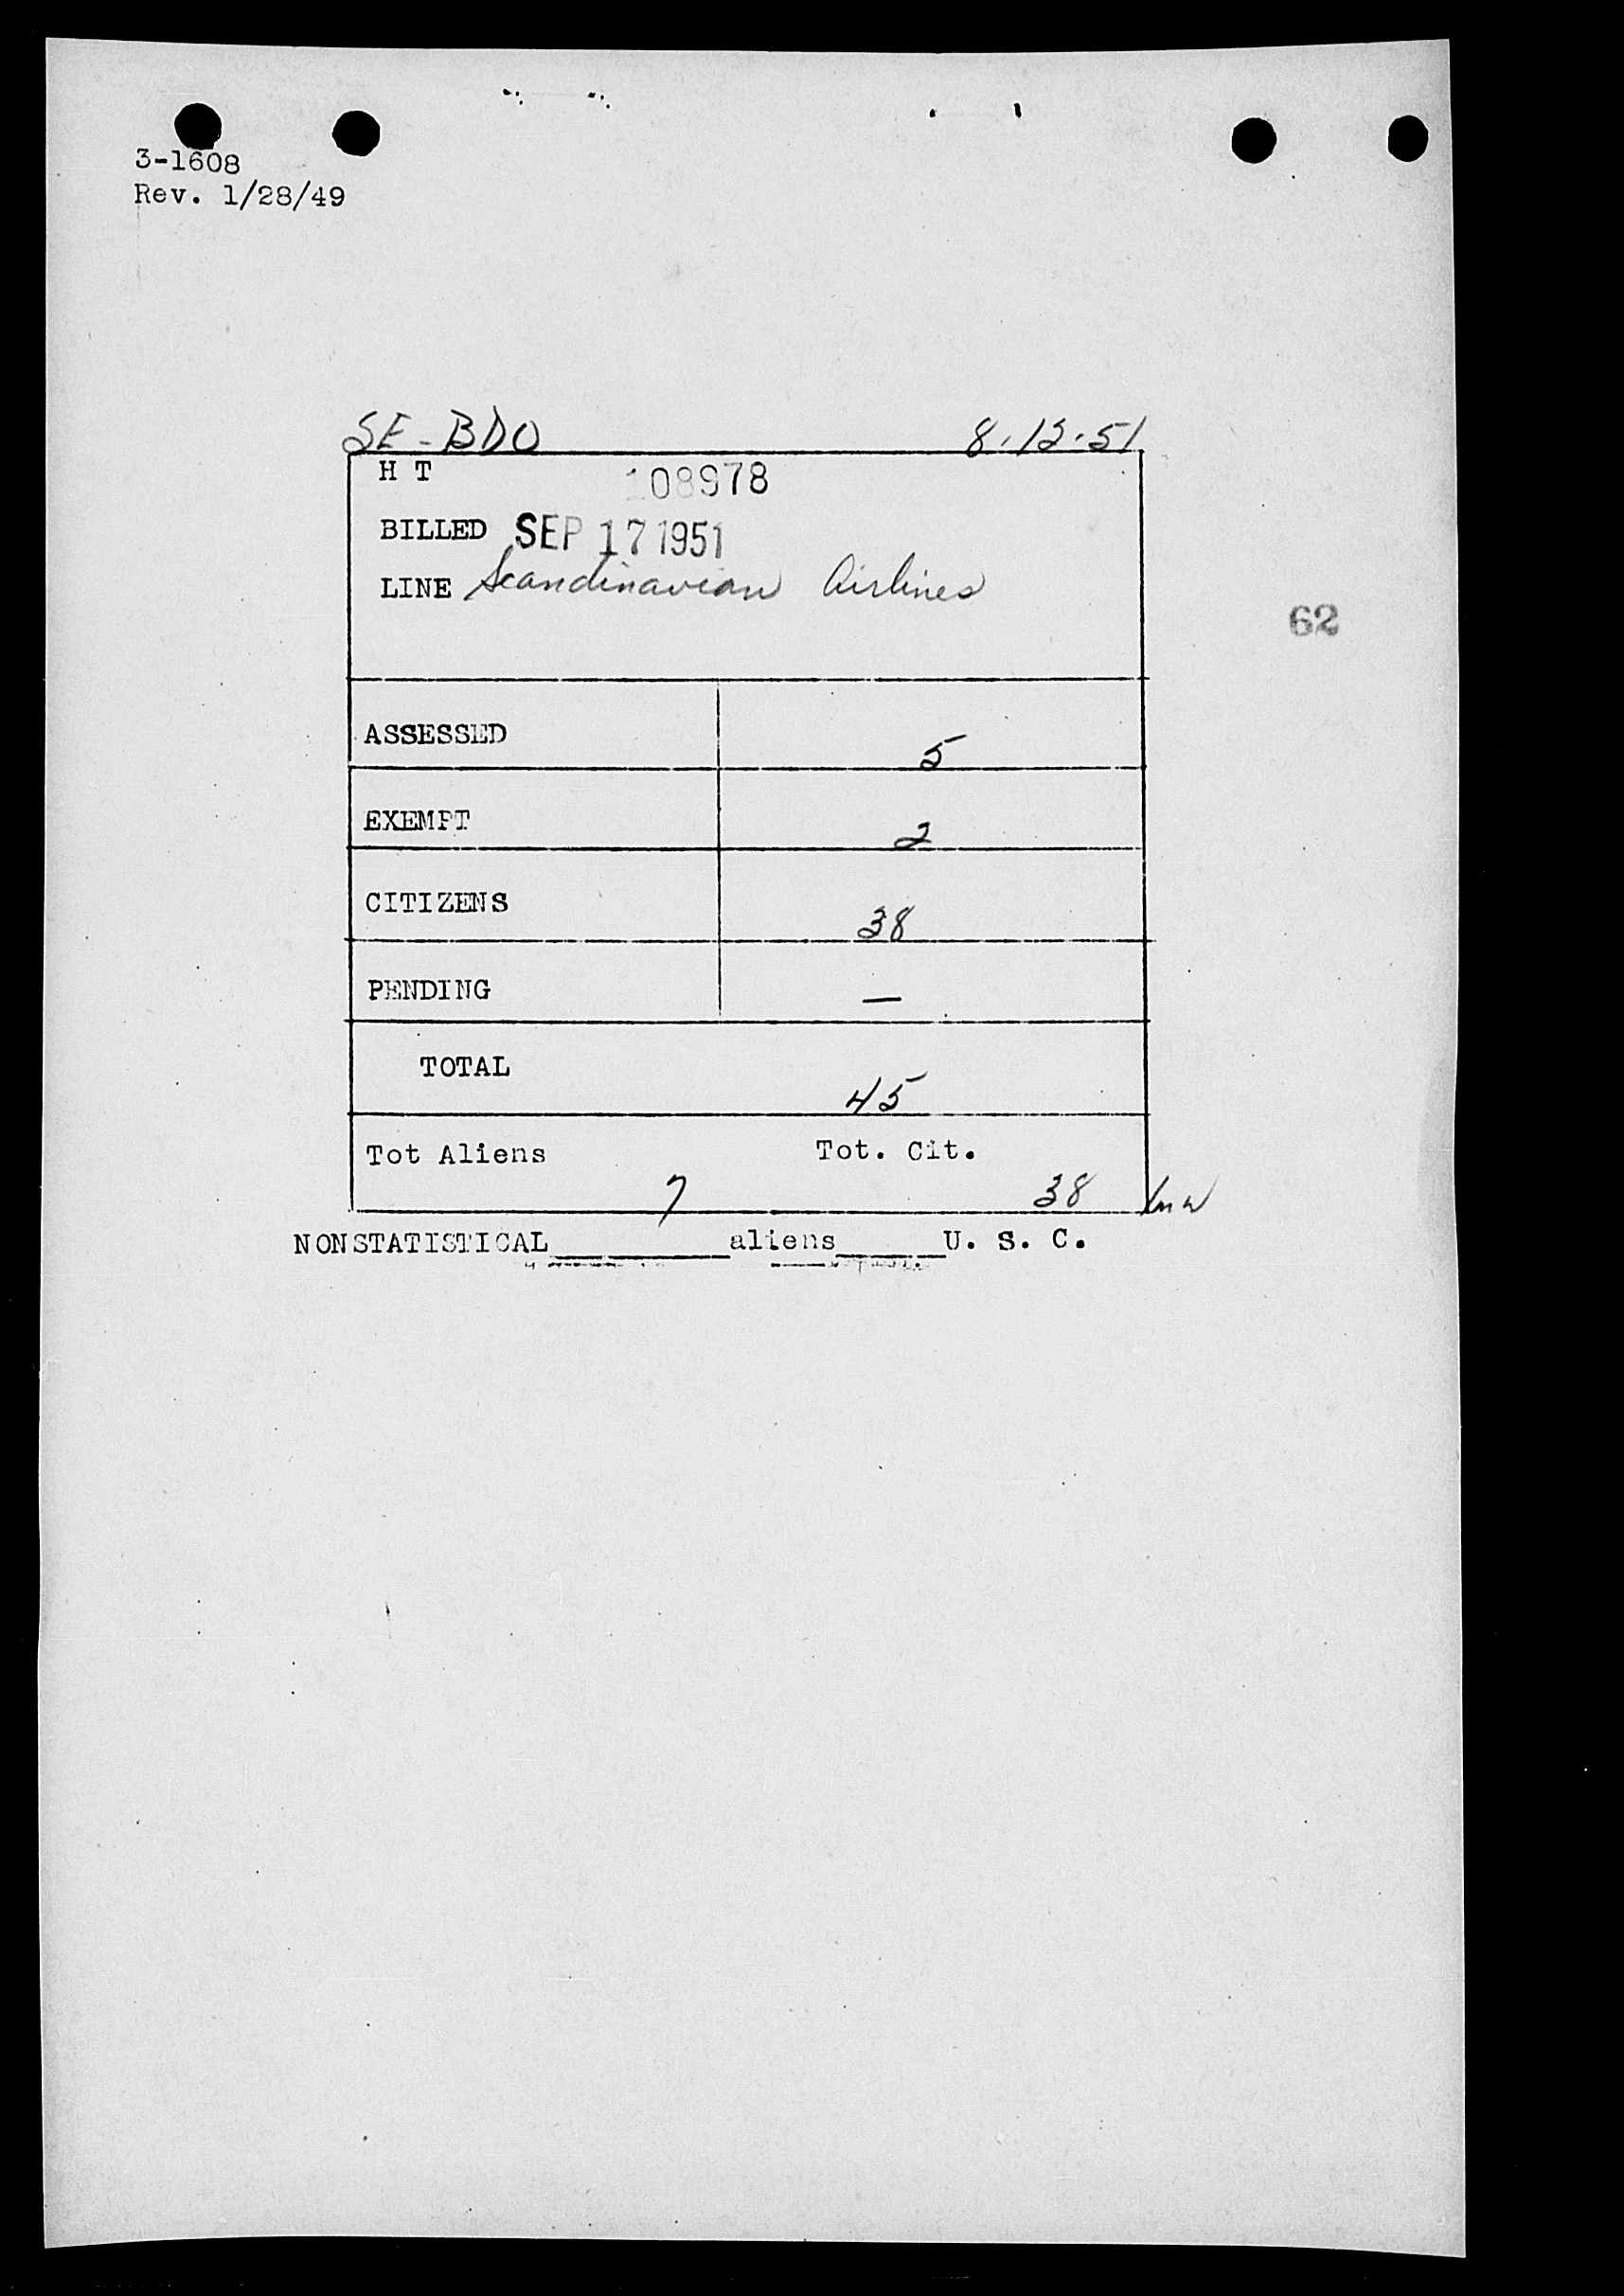 3-1608
Rev. 1/28/49
SE-BDO 8.13.51
H T 108978
BILLED SEP 17 1951
LINE Scandinavian Airlines
62
ASSESSED 5
EXEMPT 2
CITIZENS 38
PENDING —
TOTAL 45
Tot Aliens 7 Tot. Cit. 38
NONSTATISTICAL__________aliens______U. S. C.